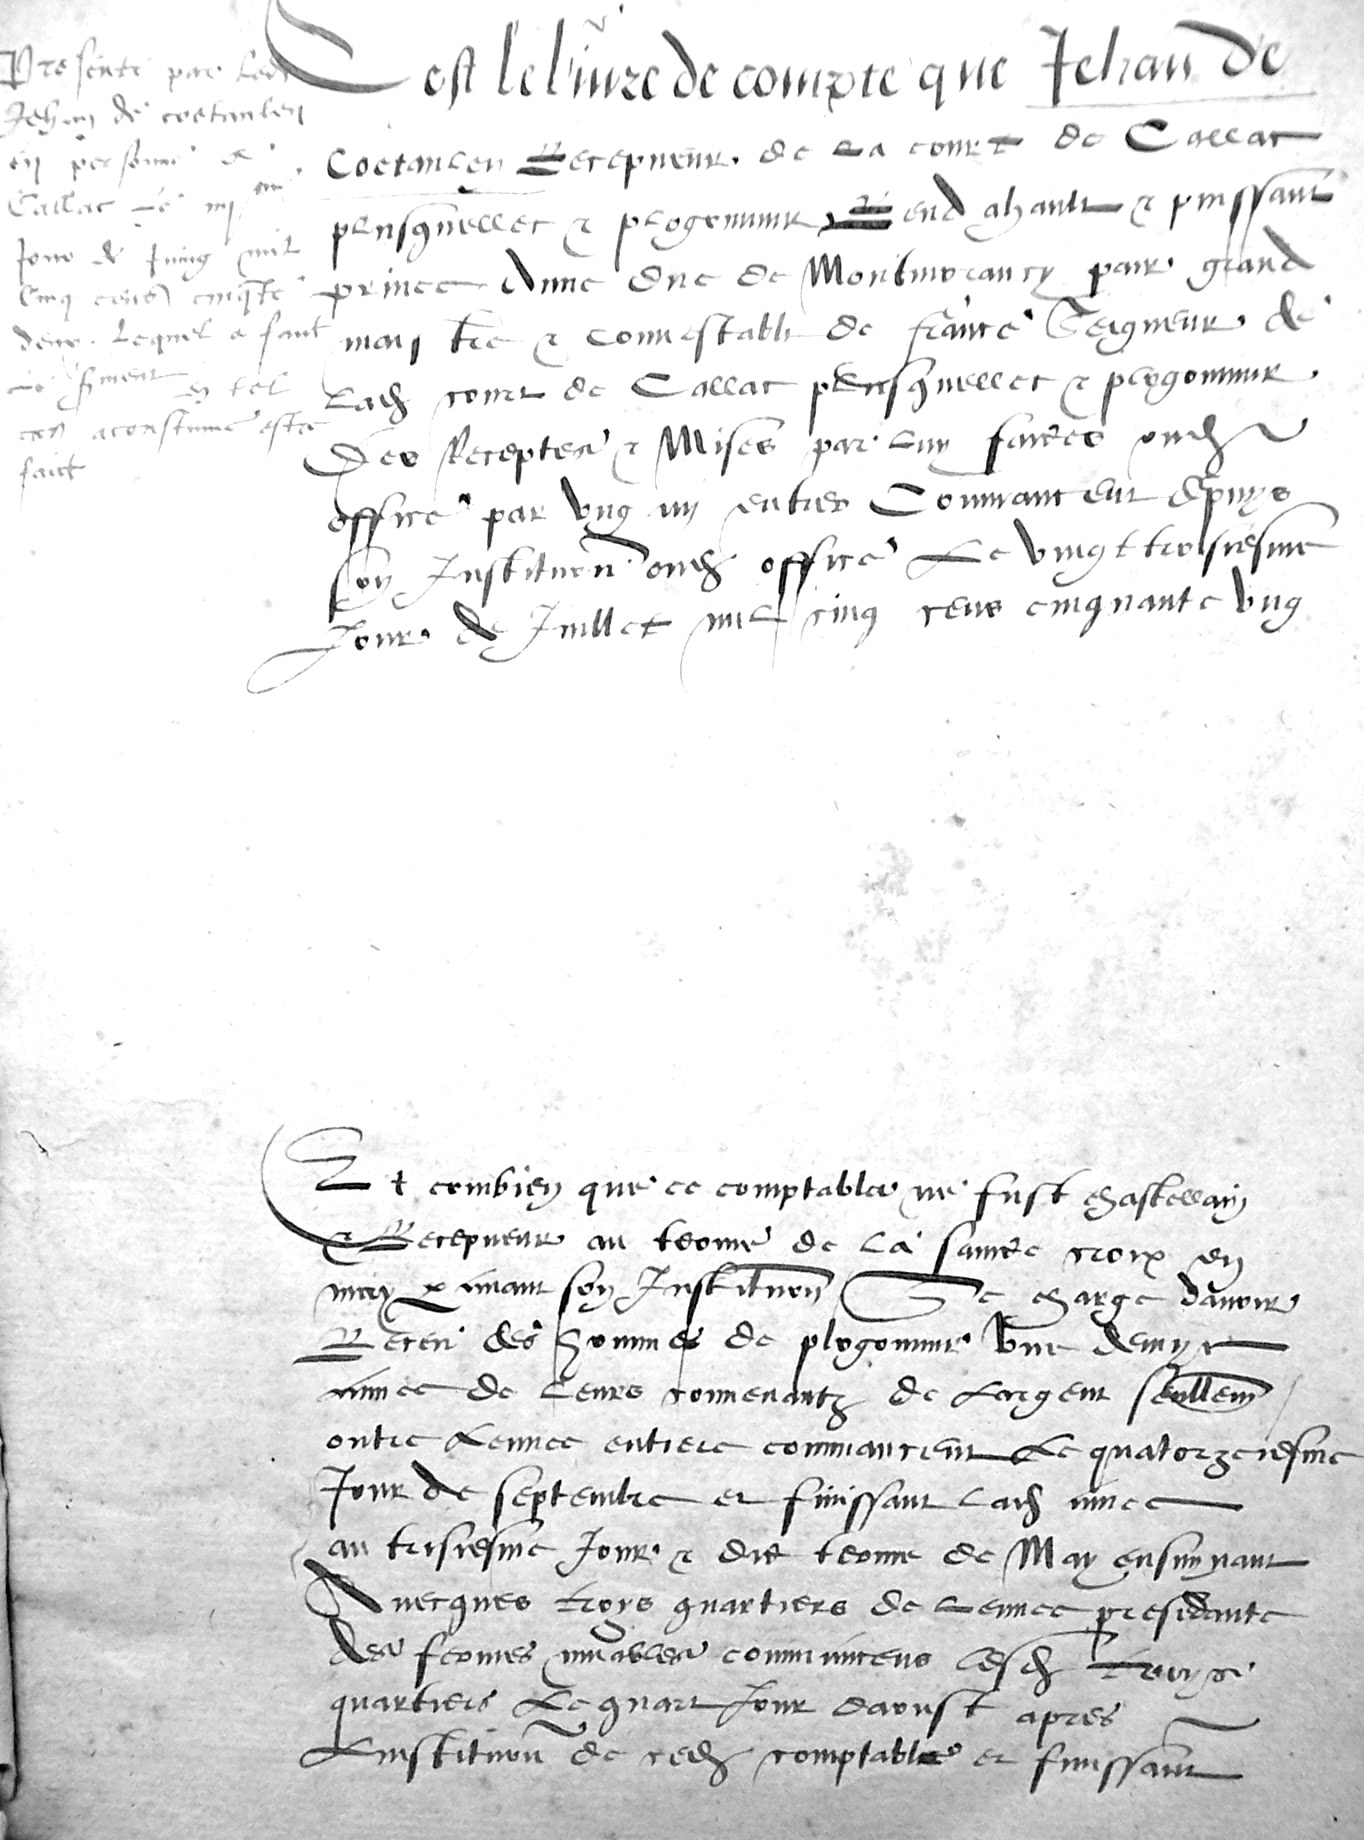 Presente par led
Jehan de coetanlen
en personne a
Callac le iiij me
Jour de Juing mil
Cinq cens cinqte
deux. Lequel a faict
le sment en tel
cas acoustume estre
faict
Cest le livre de compte que Jehan de
Coetanlen Recepveur de la court de Callac
plusquellec & plogonnur Rend a hault & puissant
prince Anne duc de Montmorancy pair grand
maistre & connestable de france Seigneur de
lad court de Callac plusquellec & plogonnur
Des Receptes & Mises par luy faictes oud
office par ung an entier Commancent depuys
son Institucn oud office Le vingt troisiesme
Jour de Juillet mil cinq cens cinquante ung
Et combien que ce comptable ne fust chastellain
& Recepveur au terme de la saincte croix en
may avant son Institucon Se charge davoir
Receu des hommes de plogonnur une demye
annee de leurs convenantz de largent seullem
oultre Lannee entiere commancent Le quatorzeiesme
Jour de septembre et finissant lad annee
au troisiesme Jour & dit terme de May ensuyvant
Avecques troys quartiers de Lannee presedante
des fermes muables commancens lesd troys
quartiers Le quart Jour daoust apres
Linstitucon de ced comptable et finissant